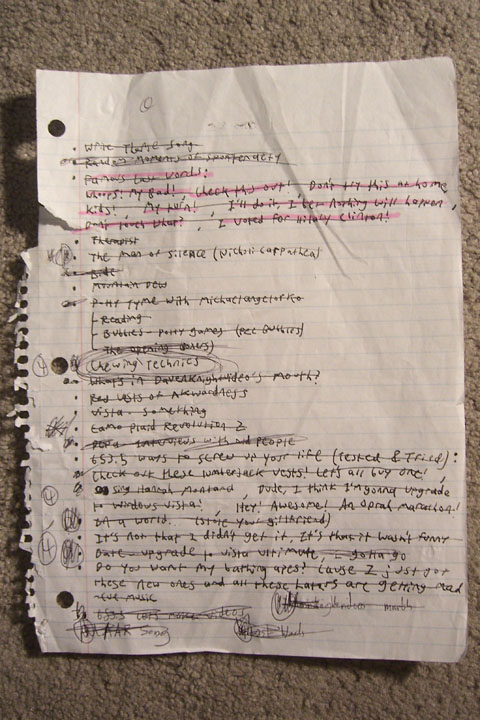 • Write Theme Song
Random Moments of Spontenaety
• Famous Last Words:
Whoops! My Bad!, Check this out!, Don't try this at home
kids!, My turn!, I'll do it, I bet nothing will happen,
Don't touch what?, I voted for Hilary Clinton!
• Therapist
• The Man of Silence (Nicholi Carpathea)
• Bide
• Mountain Dew
• Potty Tyme with Michaelangelofoko
- Reading
- Bubbies - Potty games (Pee Bubbies)
- The opening
4 • Chewing Technics
• What's in DaveKnightvideo's Mouth?
• Red Vests of Akwardness
• Vista - Something
• Camo Plaid Revolution 2
• Interviews with old People
• 653.5 ways to screw up your life (Tested & Tried):
Check out these lumberjack vests! Let's all buy one!,
Sing Hannah Montana, Dude, I think I'm gonna upgrade
4 to Windows Vista!, Hey! Awesome! An Oprah Marathon!
• In a world. (Stole your girlfriend)
4 • It's not that I didn't get it, It's that it wasn't funny
• Date - upgrade to vista ultimate, I gotta go
• Do you want my bathing apes? Cause I just got
these new ones and all these haters are getting mad
music
653.5 music videos
song